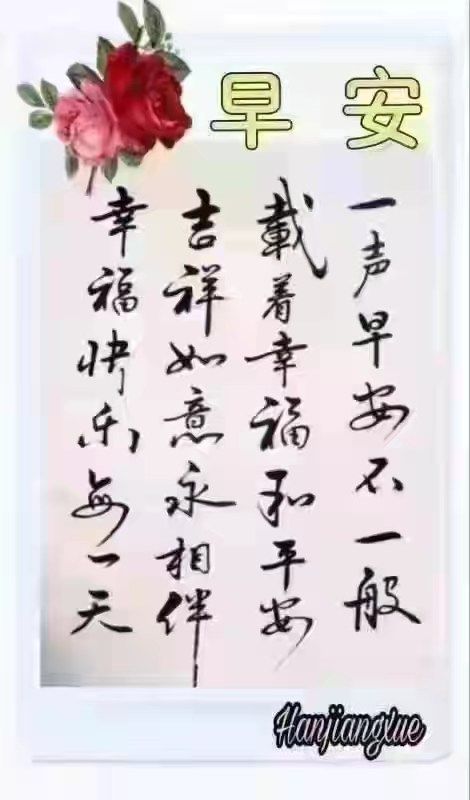 早安
一声早安不一般
载着幸福和平安
吉祥如意永相伴
幸福快乐每一天
Hanjiangxue